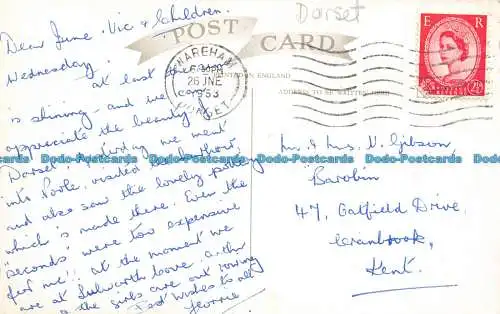 Dorset
POST CARD
PRINTED IN ENGLAND
ADDRESS TO BE WRITTEN HERE
WAREHAM
26 JNE
1953
DORSET
E R
Dear June, Vic & Children.
Wednesday.
at last the sun
is shining, and we can
appreciate the beauty of
Dorset. Yesterday we went
into Poole, visited
and also saw the lovely pottery
which is made there. Even the
"seconds" were too expensive
for me! At the moment we
are at Lulworth Cove. Arthur
& the girls are out rowing
Best wishes to all
Florrie
Mr. & Mrs V. Gibson,
Barobin
47, Gatfield Drive,
Cranbrook,
Kent.
Dodo-Postcards Dodo-Postcards Dodo-Postcards Dodo-Postcards Dodo-Postcards